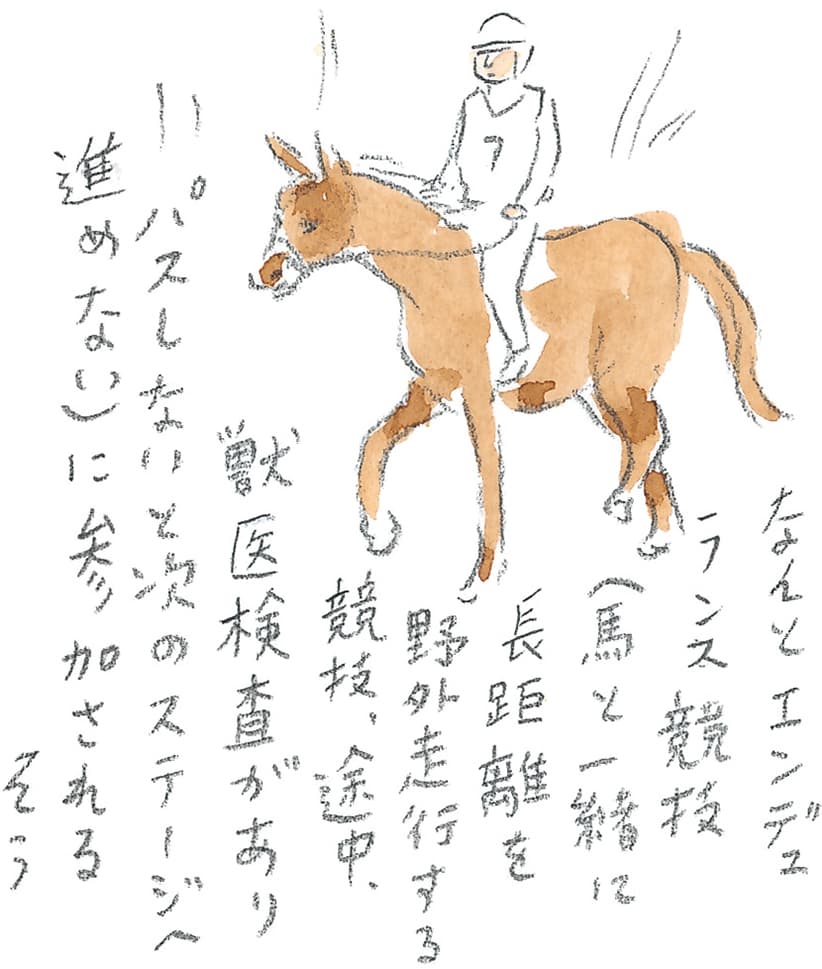 なんとエンデュ
ランス競技
(馬と一緒に
長距離を
野外走行する
競技、途中、
獣医検査があり
パスしないと次のステージへ
進めない)に参加される
そう
7